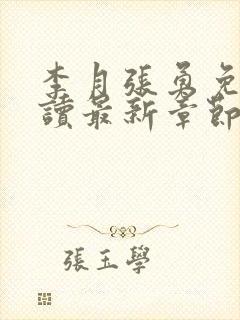 李月張勇免
讀最新章節
張玉學